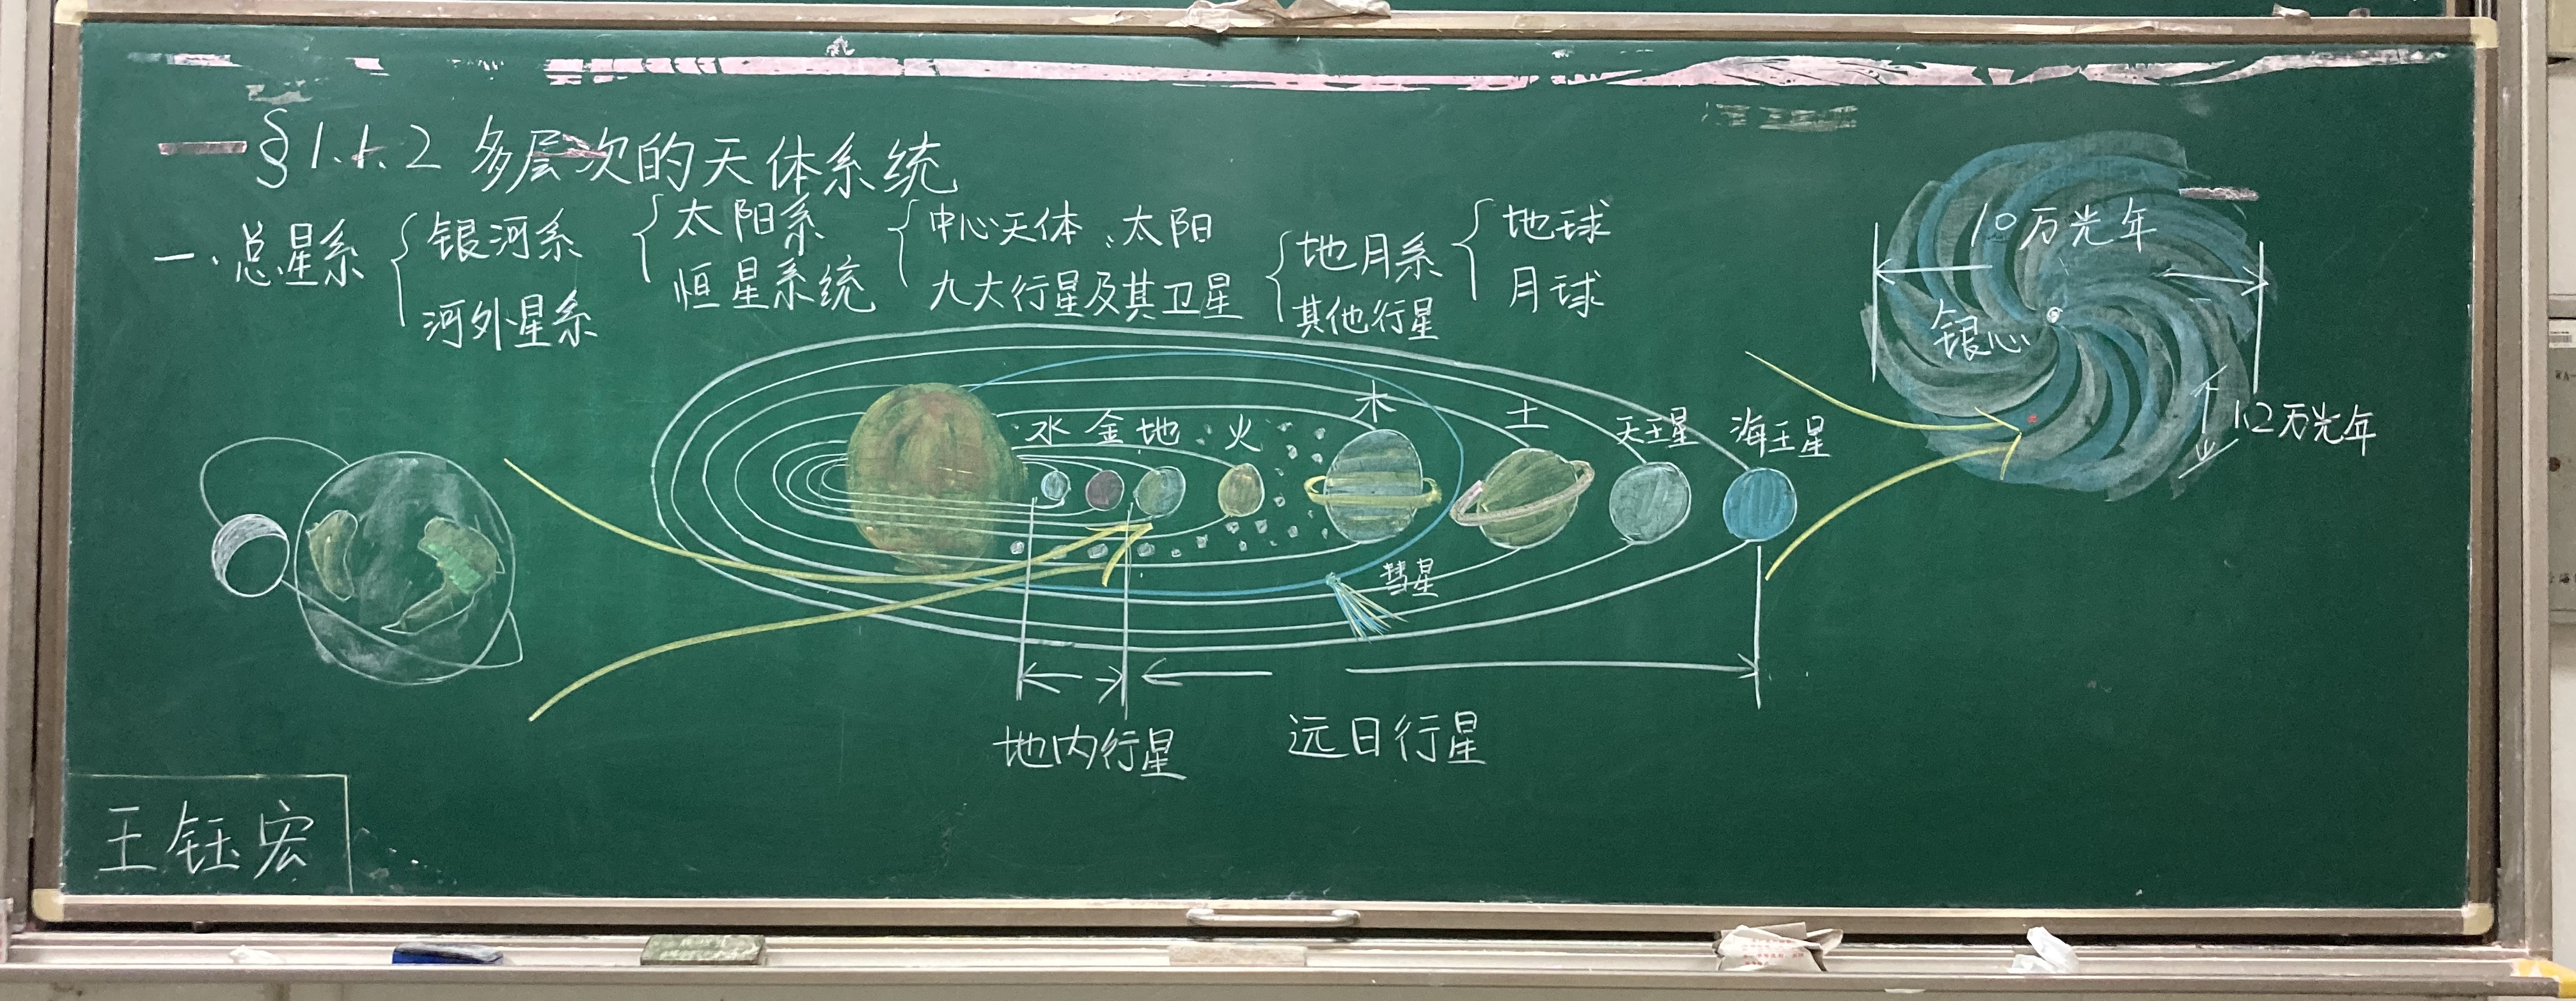 §1.1.2 多层次的天体系统
一、总星系 { 银河系 { 太阳系 { 中心天体：太阳
河外星系 恒星系统 九大行星及其卫星 { 地月系 { 地球
其他行星 月球
10万光年
银心
1.2万光年
水 金 地 火 木 土 天王星 海王星
彗星
地内行星 远日行星
王钰宏